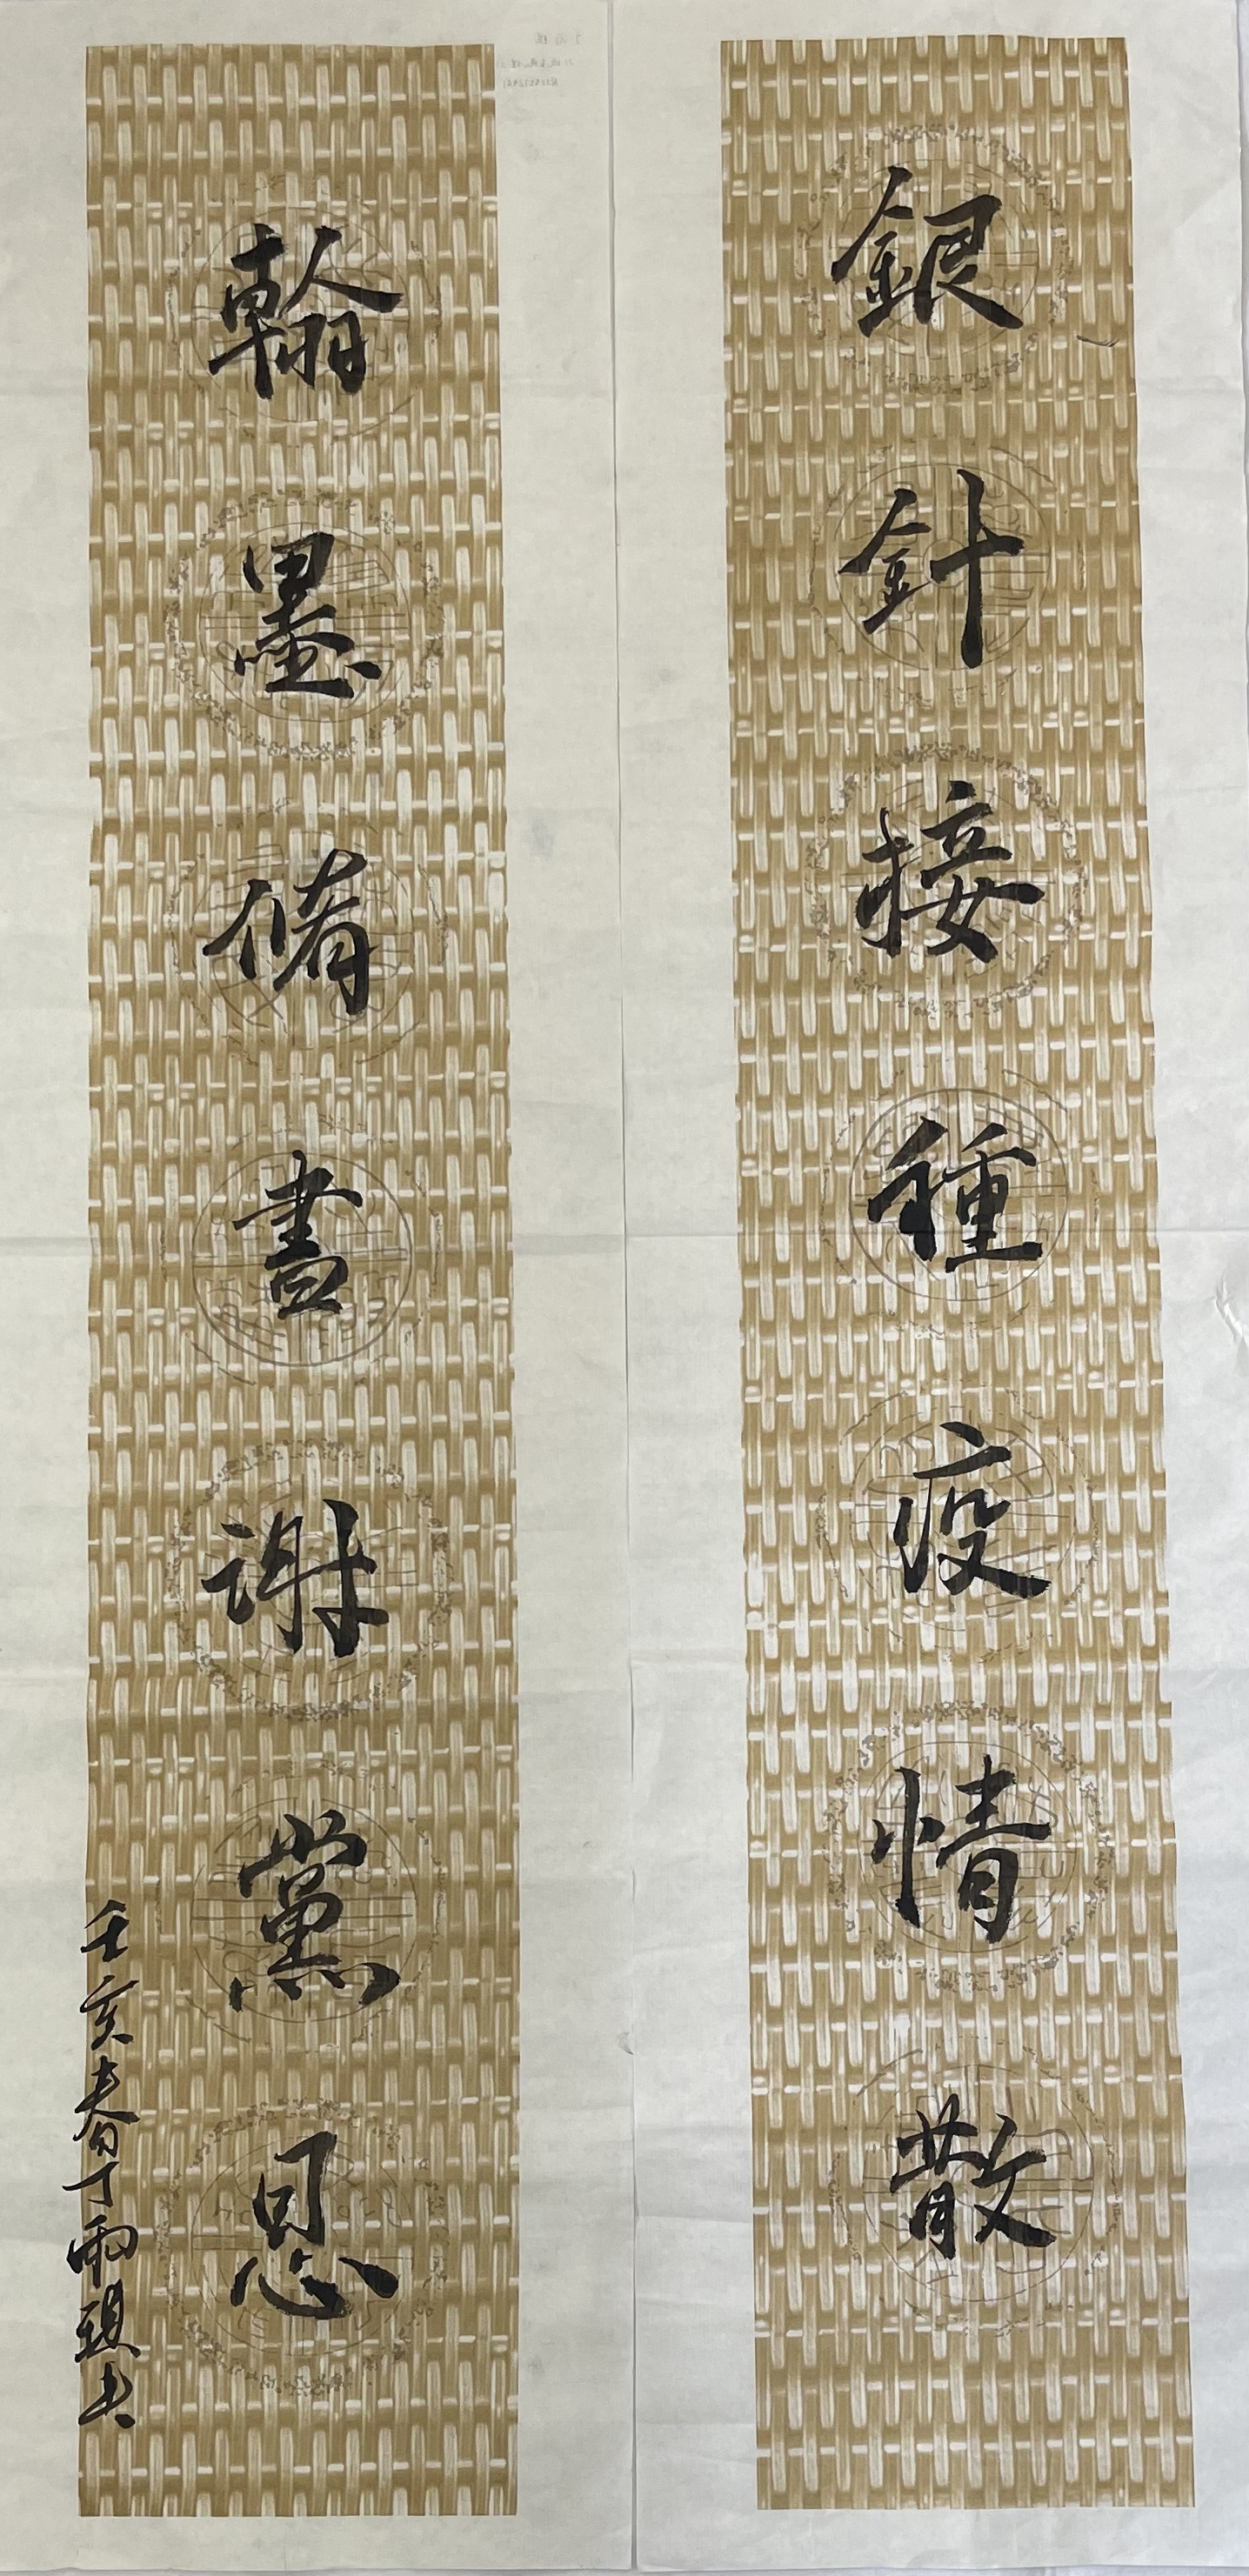 銀針接種疫情散
翰墨脩書謝黨恩
壬亥春丁雨